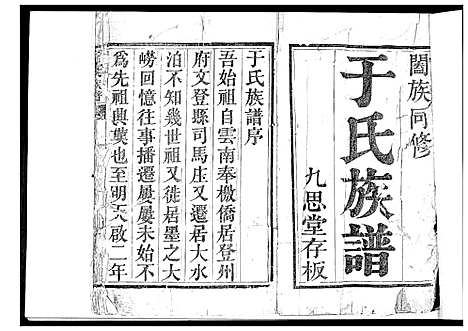 闔族同修
于氏族譜
九思堂存板
于氏族譜序
吾始祖自雲南奉檄僑居登州
府文登縣司馬庄又遷居大水
泊不知幾世祖又徙居墨之大
嶗回憶往事播遷屢屢未始不
為先祖興嘆也至明天啟二年